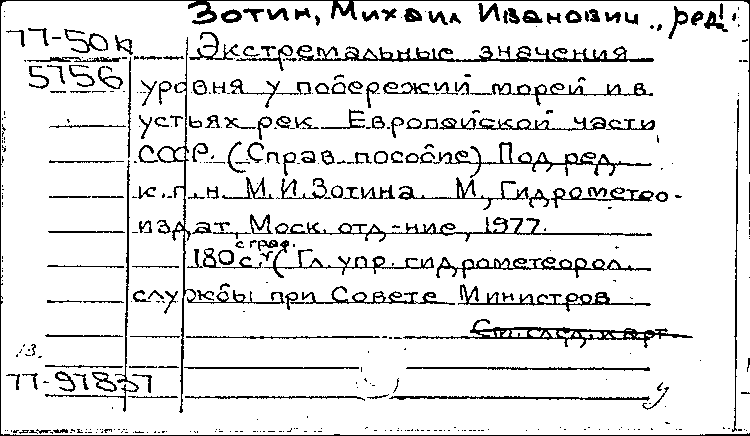 Зотин, Михаил Иванович, ред.
77-50к Экстремальные значения
5756 уровня у побережий морей и в
устьях рек Европейской части
СССР. (Справ. пособие) Под ред.
к.г.н. М.И.Зотина. М., Гидрометео-
издат, Моск. отд-ние, 1977.
с граф.
180 с. (Гл. упр. гидрометеорол.
службы при Совете Министров
См. след. карт.
13.
77-97837
у